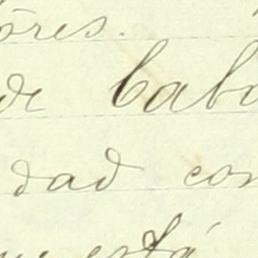 ores.
de Cabo
dad con
está